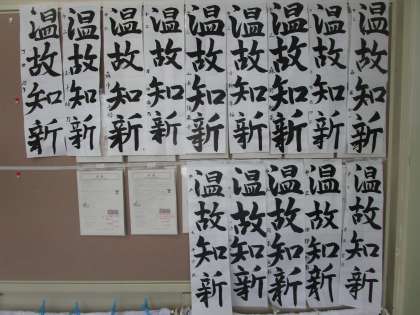 温故知新
温故知新
温故知新
温故知新
温故知新
温故知新
温故知新
温故知新
温故知新
温故知新
温故知新
温故知新
温故知新
温故知新